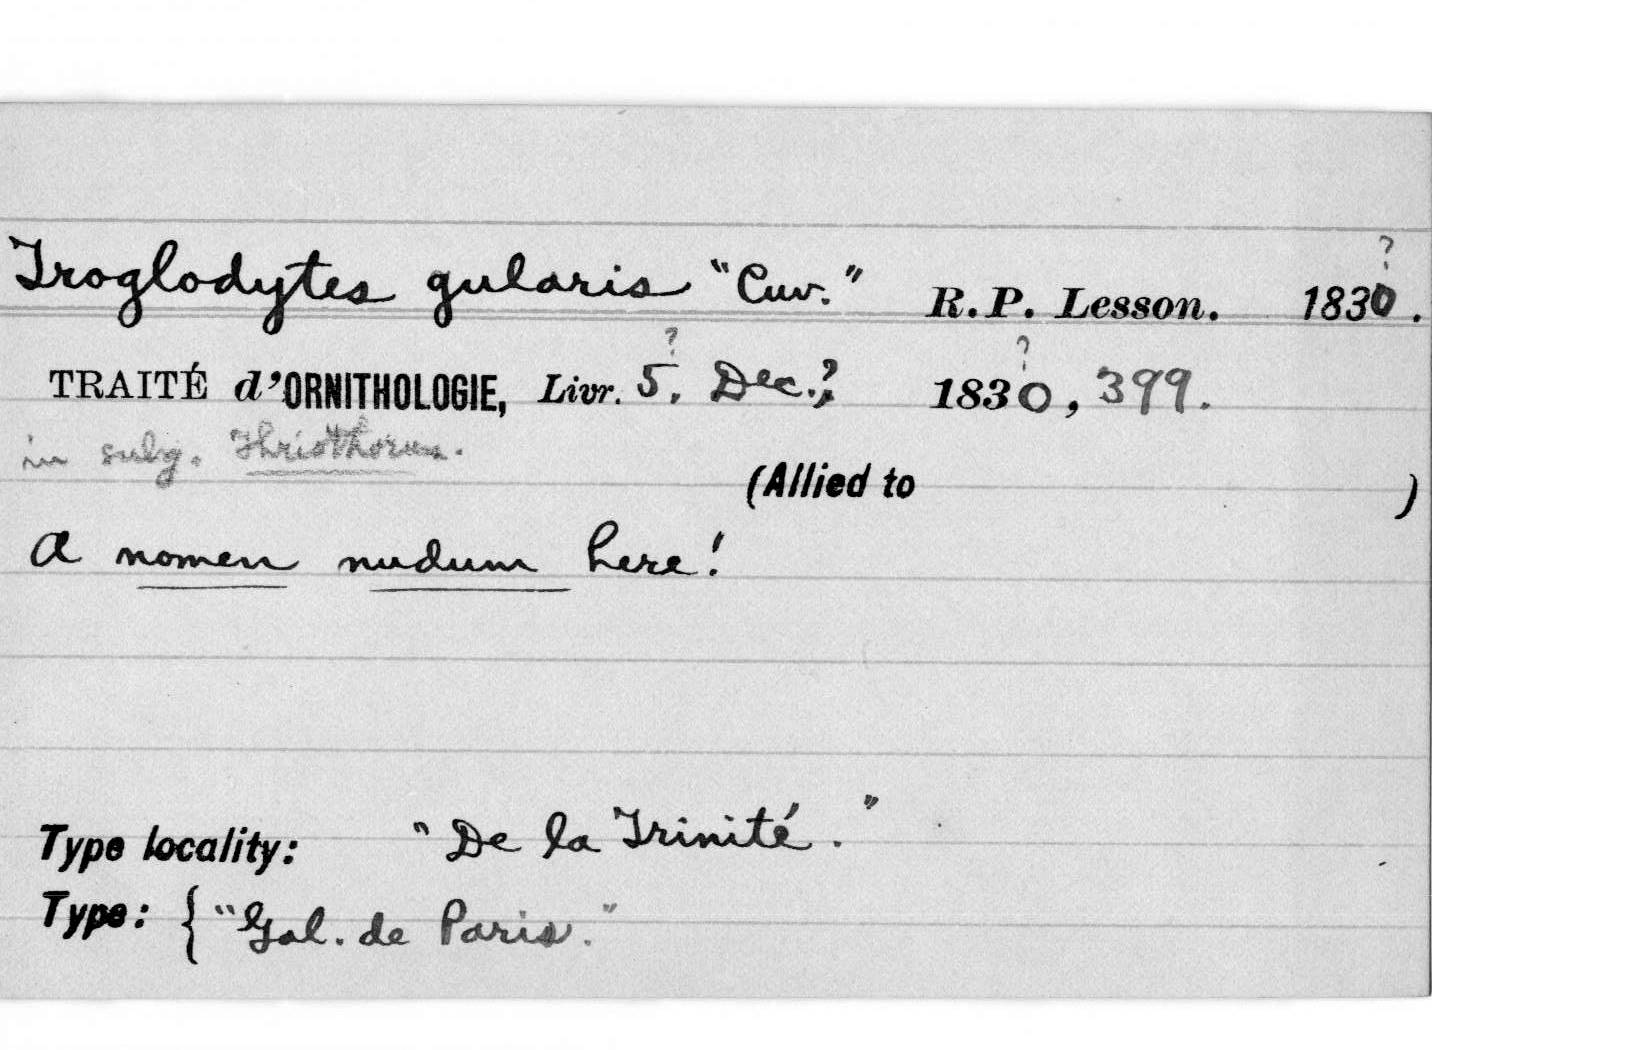 Troglodytes gularis "Cuv." R.P. Lesson. 1830?.
TRAITÉ d'ORNITHOLOGIE, Livr. 5?. Dec.? 1830?, 399.
in subg. Thriothorus.
(Allied to )
A nomen nudum here!
Type locality: "De la Trinité."
Type: { "Gal. de Paris."